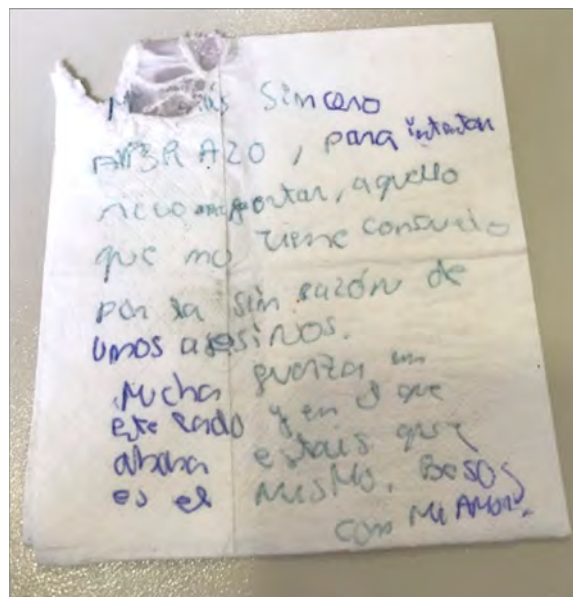 Mi más sincero
ABRAZO, para intentar
reconfortar, aquello
que no tiene consuelo
por la sin razón de
unos asesinos.
Mucha fuerza en
este lado y en el que
ahora estáis que
es el mismo. Besos
con mi AMOR.